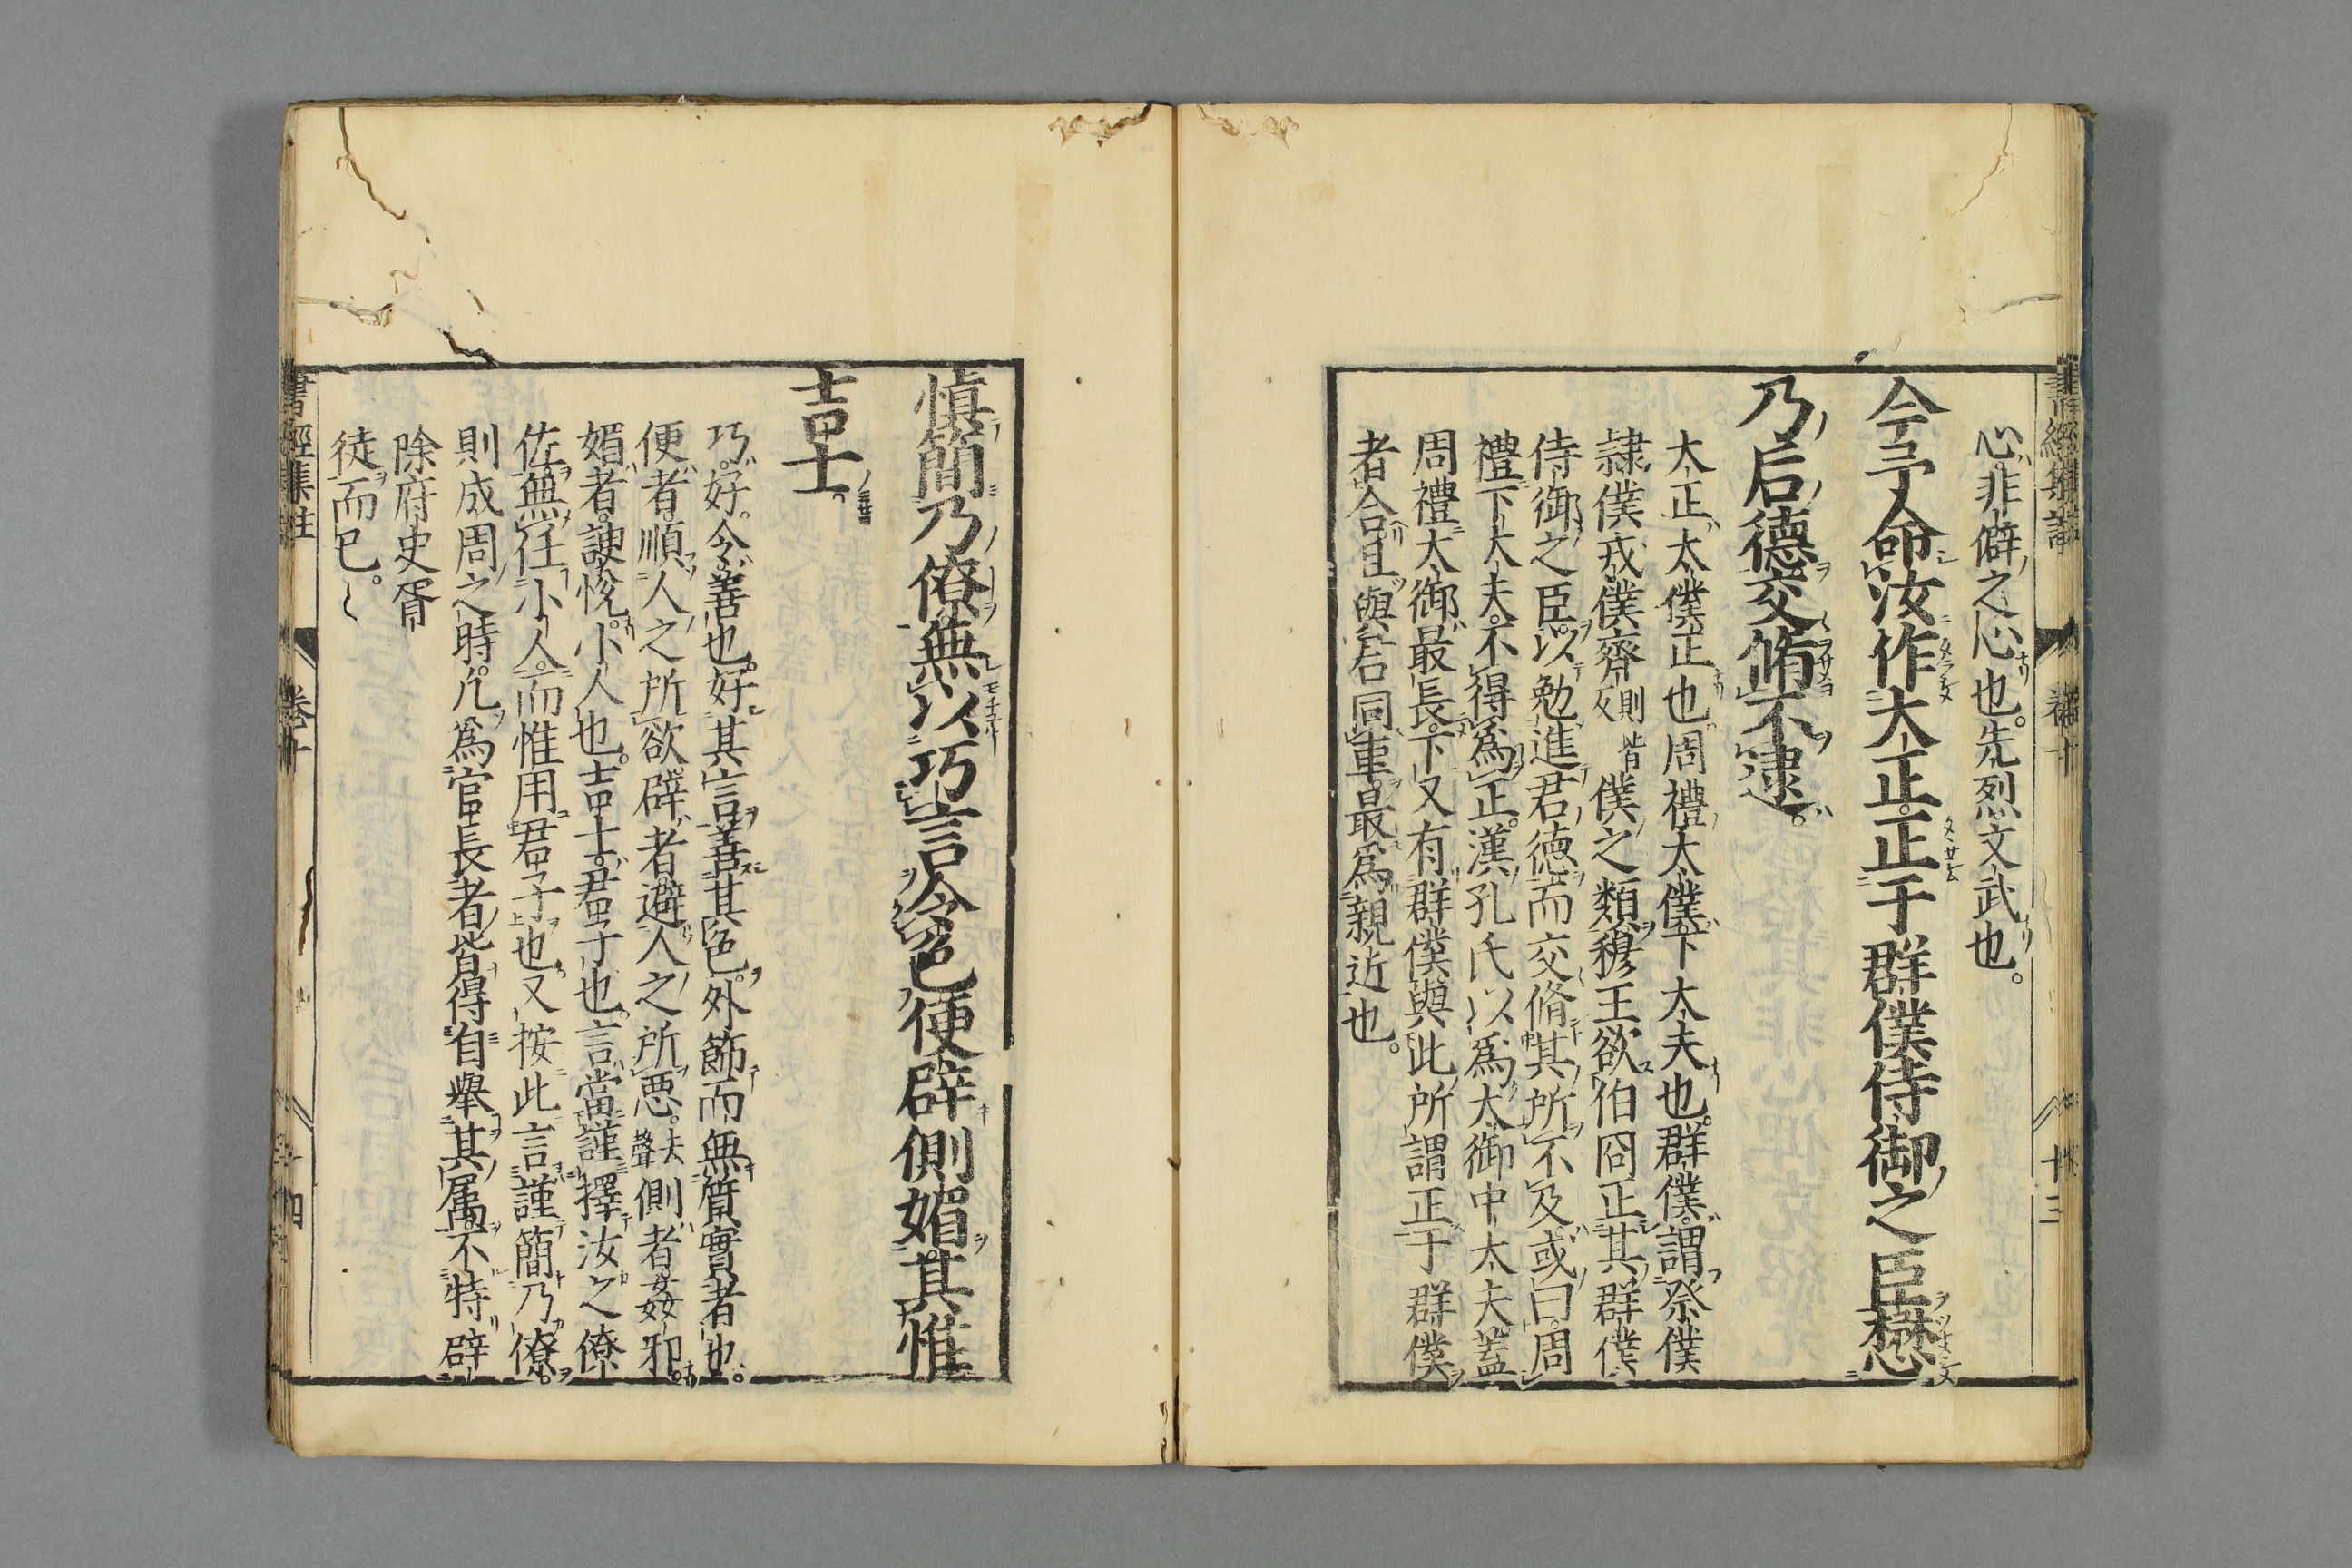 心非僻之心也。先烈文武也。
今予命汝作大正。正于群僕侍御之臣懋
乃后德交脩不逮。
大正太僕正也周禮太僕下大夫也。群僕謂祭僕
隷僕戎僕齊則皆反僕之類穆王欲伯冏正其群僕
侍御之臣以勉進君德而交脩其所不及或曰。周
禮下大夫。不得爲正。漢孔氏以爲太御中大夫蓋
周禮太御最長。下又有群僕與此所謂正于群僕
者合。且與君同車最爲親近也。
慎簡乃僚無以巧言令色便辟側媚其惟
吉士。
巧好。令善也。好其言善其色。外飾而無質實者也。
便者。順人之所欲辟者避人之所惡。夫聲側者姦邪。
媚者。諛悅。小人也。吉士。君子也言當謹擇汝之僚
佐。無任小人。而惟用君子也又按此言謹簡乃僚。
則成周之時。凡爲官長者皆得自舉其属。不特辟
除府史胥
徒而已。
書經集註 卷十 十四